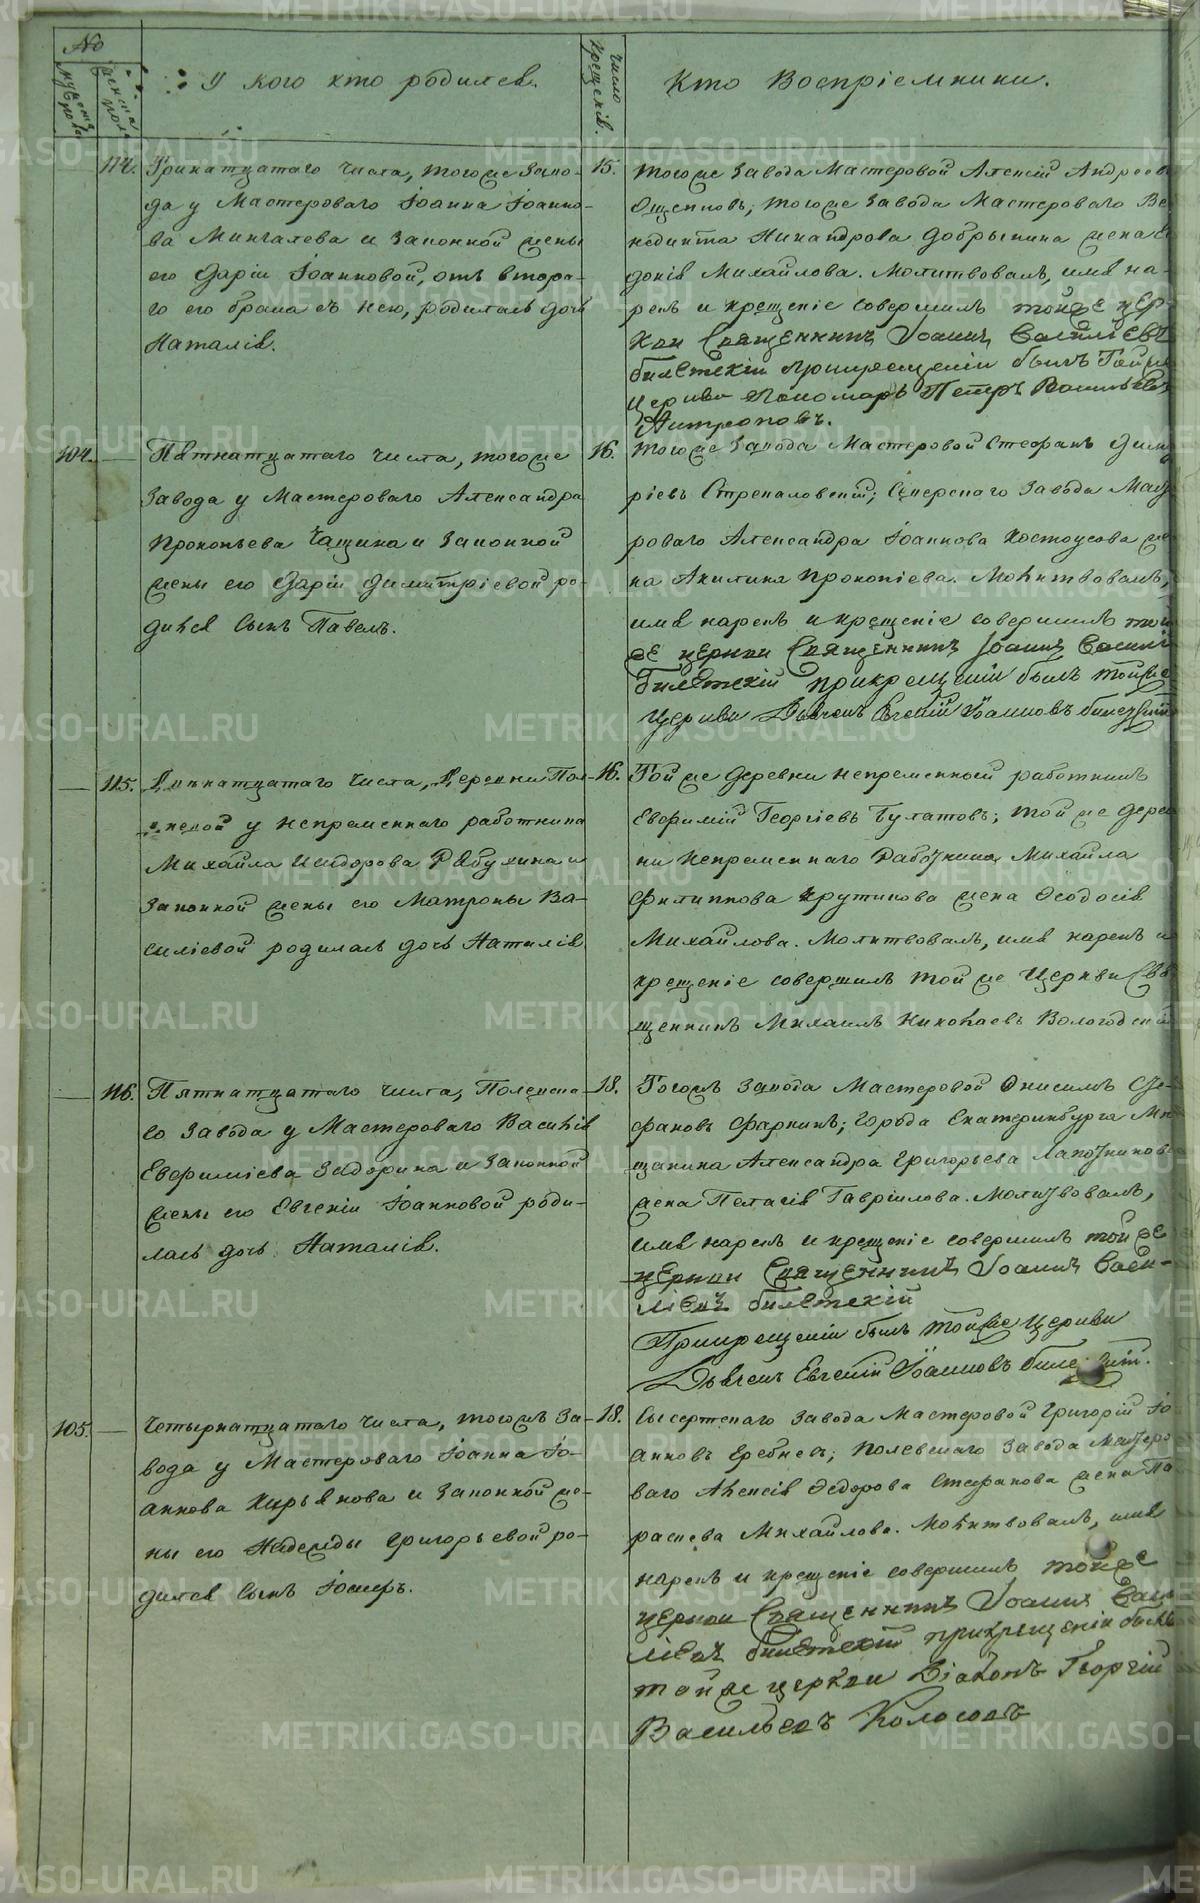 №
мужеска пола
женска пола
У кого кто родился.
Число крещенія.
Кто Воспріемники.
114.
Тринатцатаго числа, тогоже Заво-
да у Мастероваго Іоанна Іоанно-
ва Мингалева и Законной жены
его Даріи Іоанновой, отъ второ-
го его брака съ нею, родилась дочь
Наталія.
15.
тогоже Завода Мастеровой Алексій Андреевъ
Ощепковъ; тогоже Завода Мастероваго Ве-
недикта Никандрова Добрынина жена
Михайлова. Молитвовалъ, имя на-
рекъ и крещеніе совершилъ тойже цер-
кви Священникъ Іоаннъ Василіевъ
Билетскій при крещеніи былъ Тойже
Церкви Пономарь Петръ Васильевъ
104.
Пятнатцатаго числа, тогоже
Завода у Мастероваго Александра
Прокопьева Чащина и Законной
жены его Даріи Димитріевой ро-
дился Сынъ Павелъ.
16.
тогоже Завода Мастеровой Стефанъ Дими-
ріевъ Стрекаловскій; Сѣверскаго Завода Масте
роваго Александра Іоаннова Костоусова же
на Акилина Прокопіева. Молитвовалъ,
имя нарекъ и крещеніе совершилъ той
же церкви Священникъ Іоаннъ Василі
Билетскій при крещеніи былъ тойже
Церкви Дьячекъ Евгеній Іоанновъ Билетскій
115.
числа, Деревни Пол-
дневой у непременнаго работника
Михайла Исидорова Рябухина и
Законной жены его Матроны Ва-
силіевой родилась дочь Наталія.
16.
Той же деревни непременной работникъ
Евфимій Георгіевъ Булатовъ; той же дерев
ни Непременнаго Работника Михайла
Филиппова Крутикова жена Феодосія
Михайлова. Молитвовалъ, имя нарекъ и
крещеніе совершилъ той же Церкви Свя
щенникъ Михаилъ Николаевъ Вологодскій
116.
Пятнатцатаго числа, Полевска-
го Завода у Мастероваго Василія
Евфиміева Задорина и Законной
жены его Евгеніи Іоанновой роди-
лась дочь Наталія.
18.
Тогожъ Завода Мастеровой Онисимъ Сте-
фановъ Фаркинъ; Города Екатеринбурга Мѣ
щанина Александра Григорьева Лапотникова
жена Пелагія Гавріилова. Молитвовалъ,
имя нарекъ и крещеніе совершилъ той же
церкви Священникъ Іоаннъ Васи-
ліевъ Билетскій
При крещеніи былъ тойже Церкви
Дьячекъ Евгеній Іоанновъ Билетскій.
105.
Четырнатцатаго числа, тогожъ За-
вода у Мастероваго Іоанна Іо-
аннова Кирьянова и Законной же-
ны его Надежды Григорьевой ро-
дился Сынъ Іосифъ.
18.
Сысертскаго Завода Мастеровой Григорій Іо
анновъ Еребневъ; Полевскаго Завода Мастеро
ваго Алексія Федорова Стафанова жена Па
раскева Михайлова. Молитвовалъ, имя
нарекъ и крещеніе совершилъ той же
церкви Священникъ Іоаннъ Васи
ліевъ Билетскій при крещеніи былъ
той же церкви Діаконъ Георгій
Васильевъ Колосовъ
METRIKI.GASO-URAL.RU